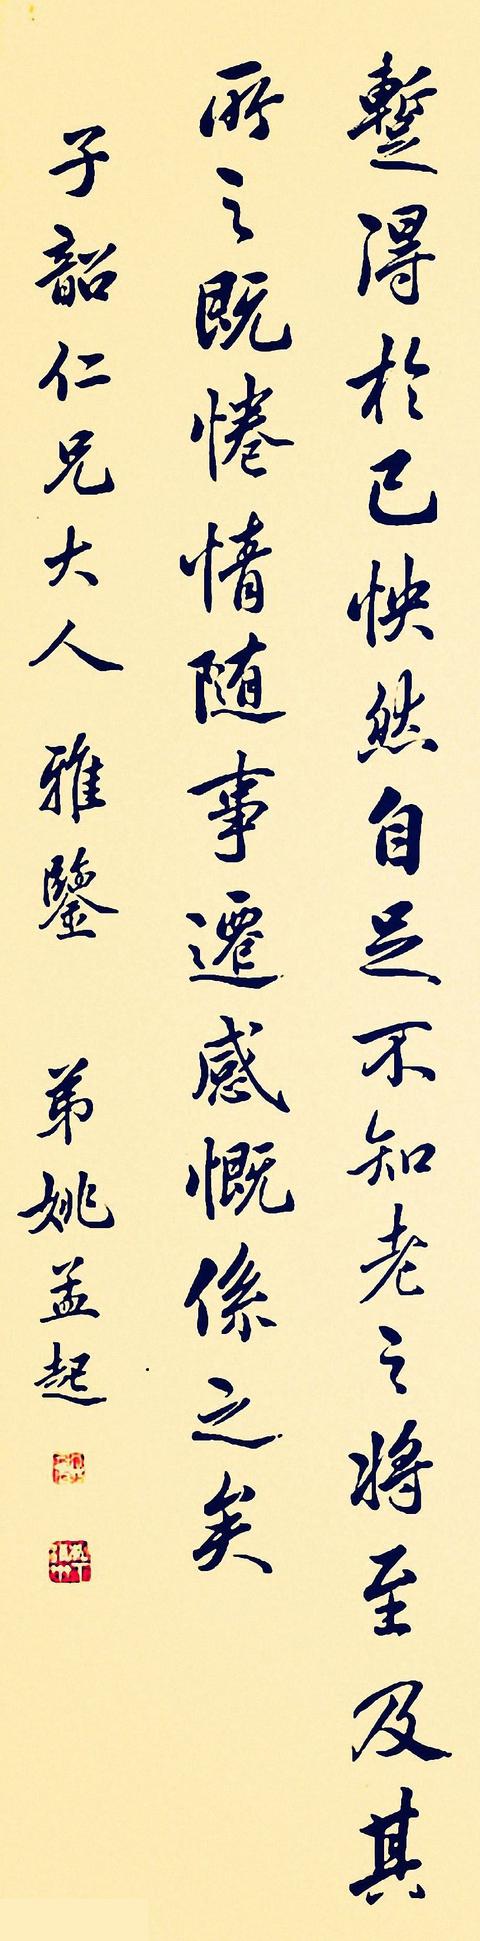 蹔得於己怏然自足不知老之將至及其
所之既惓情随事遷感慨係之矣
子韶仁兄大人 雅鑒 弟姚孟起